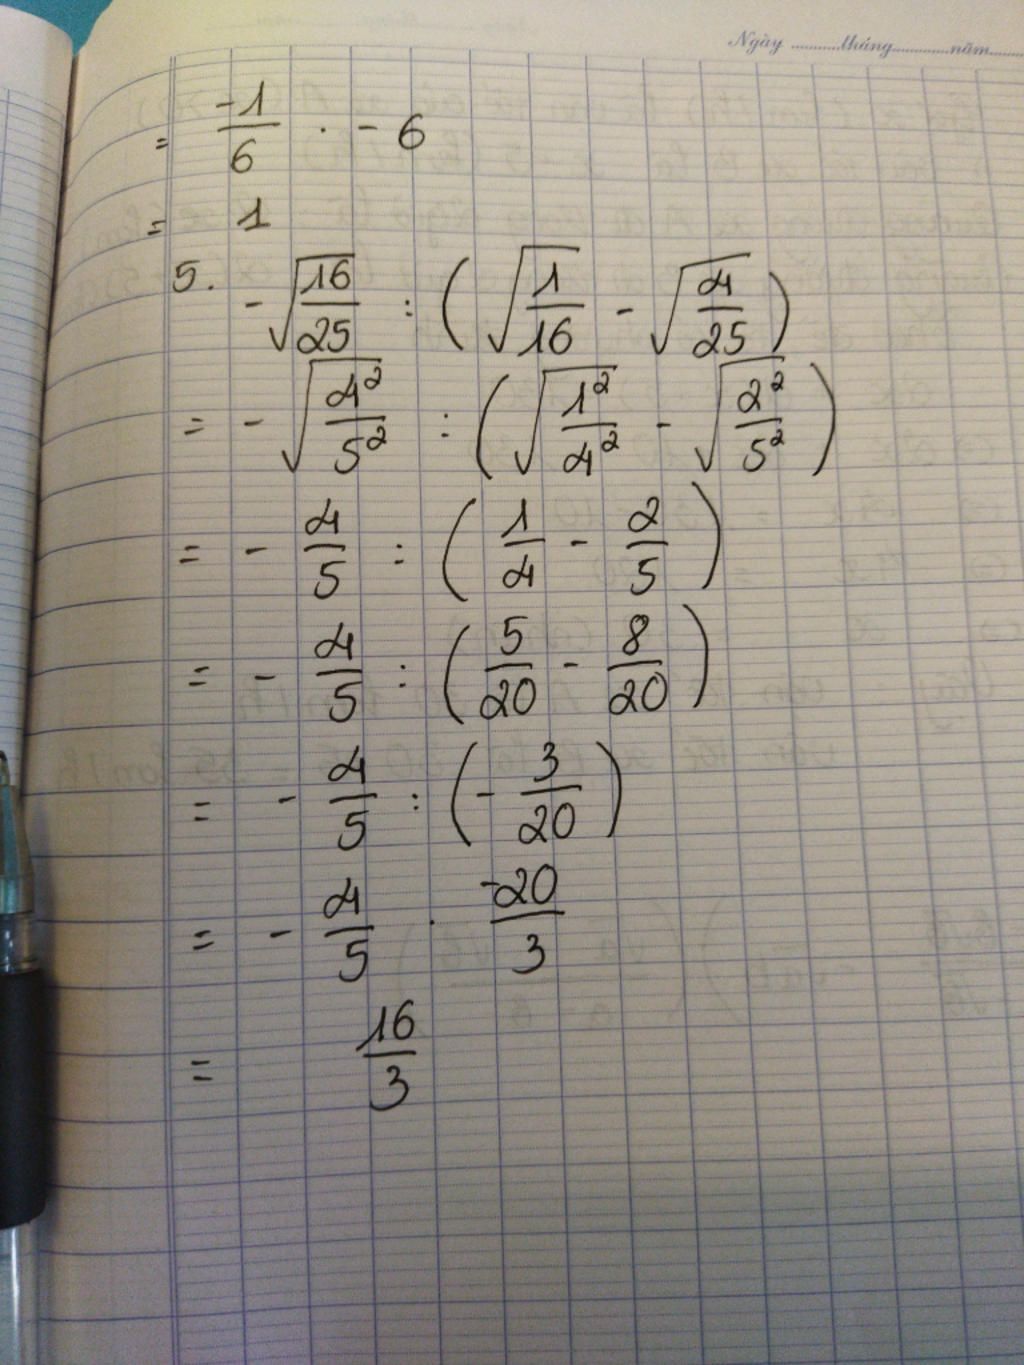 Ngày ..........tháng..........năm..........
= -1/6 . - 6
= 1
5. -√(16/25) : (√(1/16) - √(4/25))
= - √(4²/5²) : (√(1²/4²) - √(2²/5²))
= - 4/5 : (1/4 - 2/5)
= - 4/5 : (5/20 - 8/20)
= - 4/5 : (- 3/20)
= - 4/5 . -20/3
= 16/3